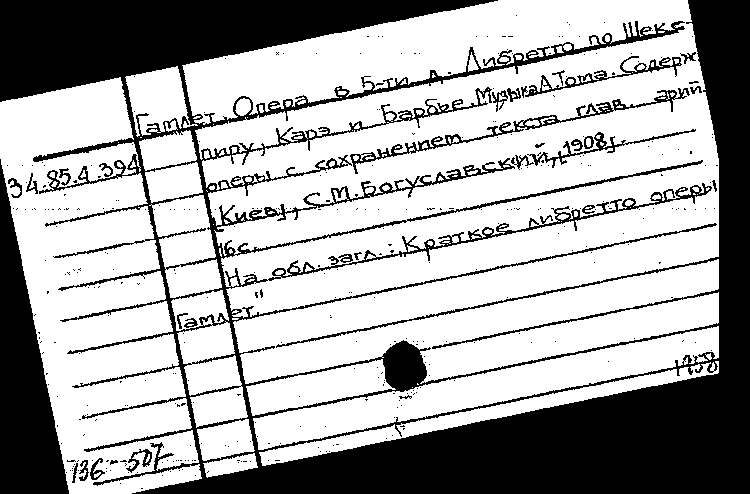 Гамлет. Опера в 5-ти д. Либретто по Шекс-
пиру, Карэ и Барбье. Музыка А. Тома. Содерж.
34.85.4.394
оперы с сохранением текста глав. арий.
[Киев], С.М. Богуславский, [1908].
16 с.
На обл. загл.: „Краткое либретто оперы
Гамлет."
1958
136-507